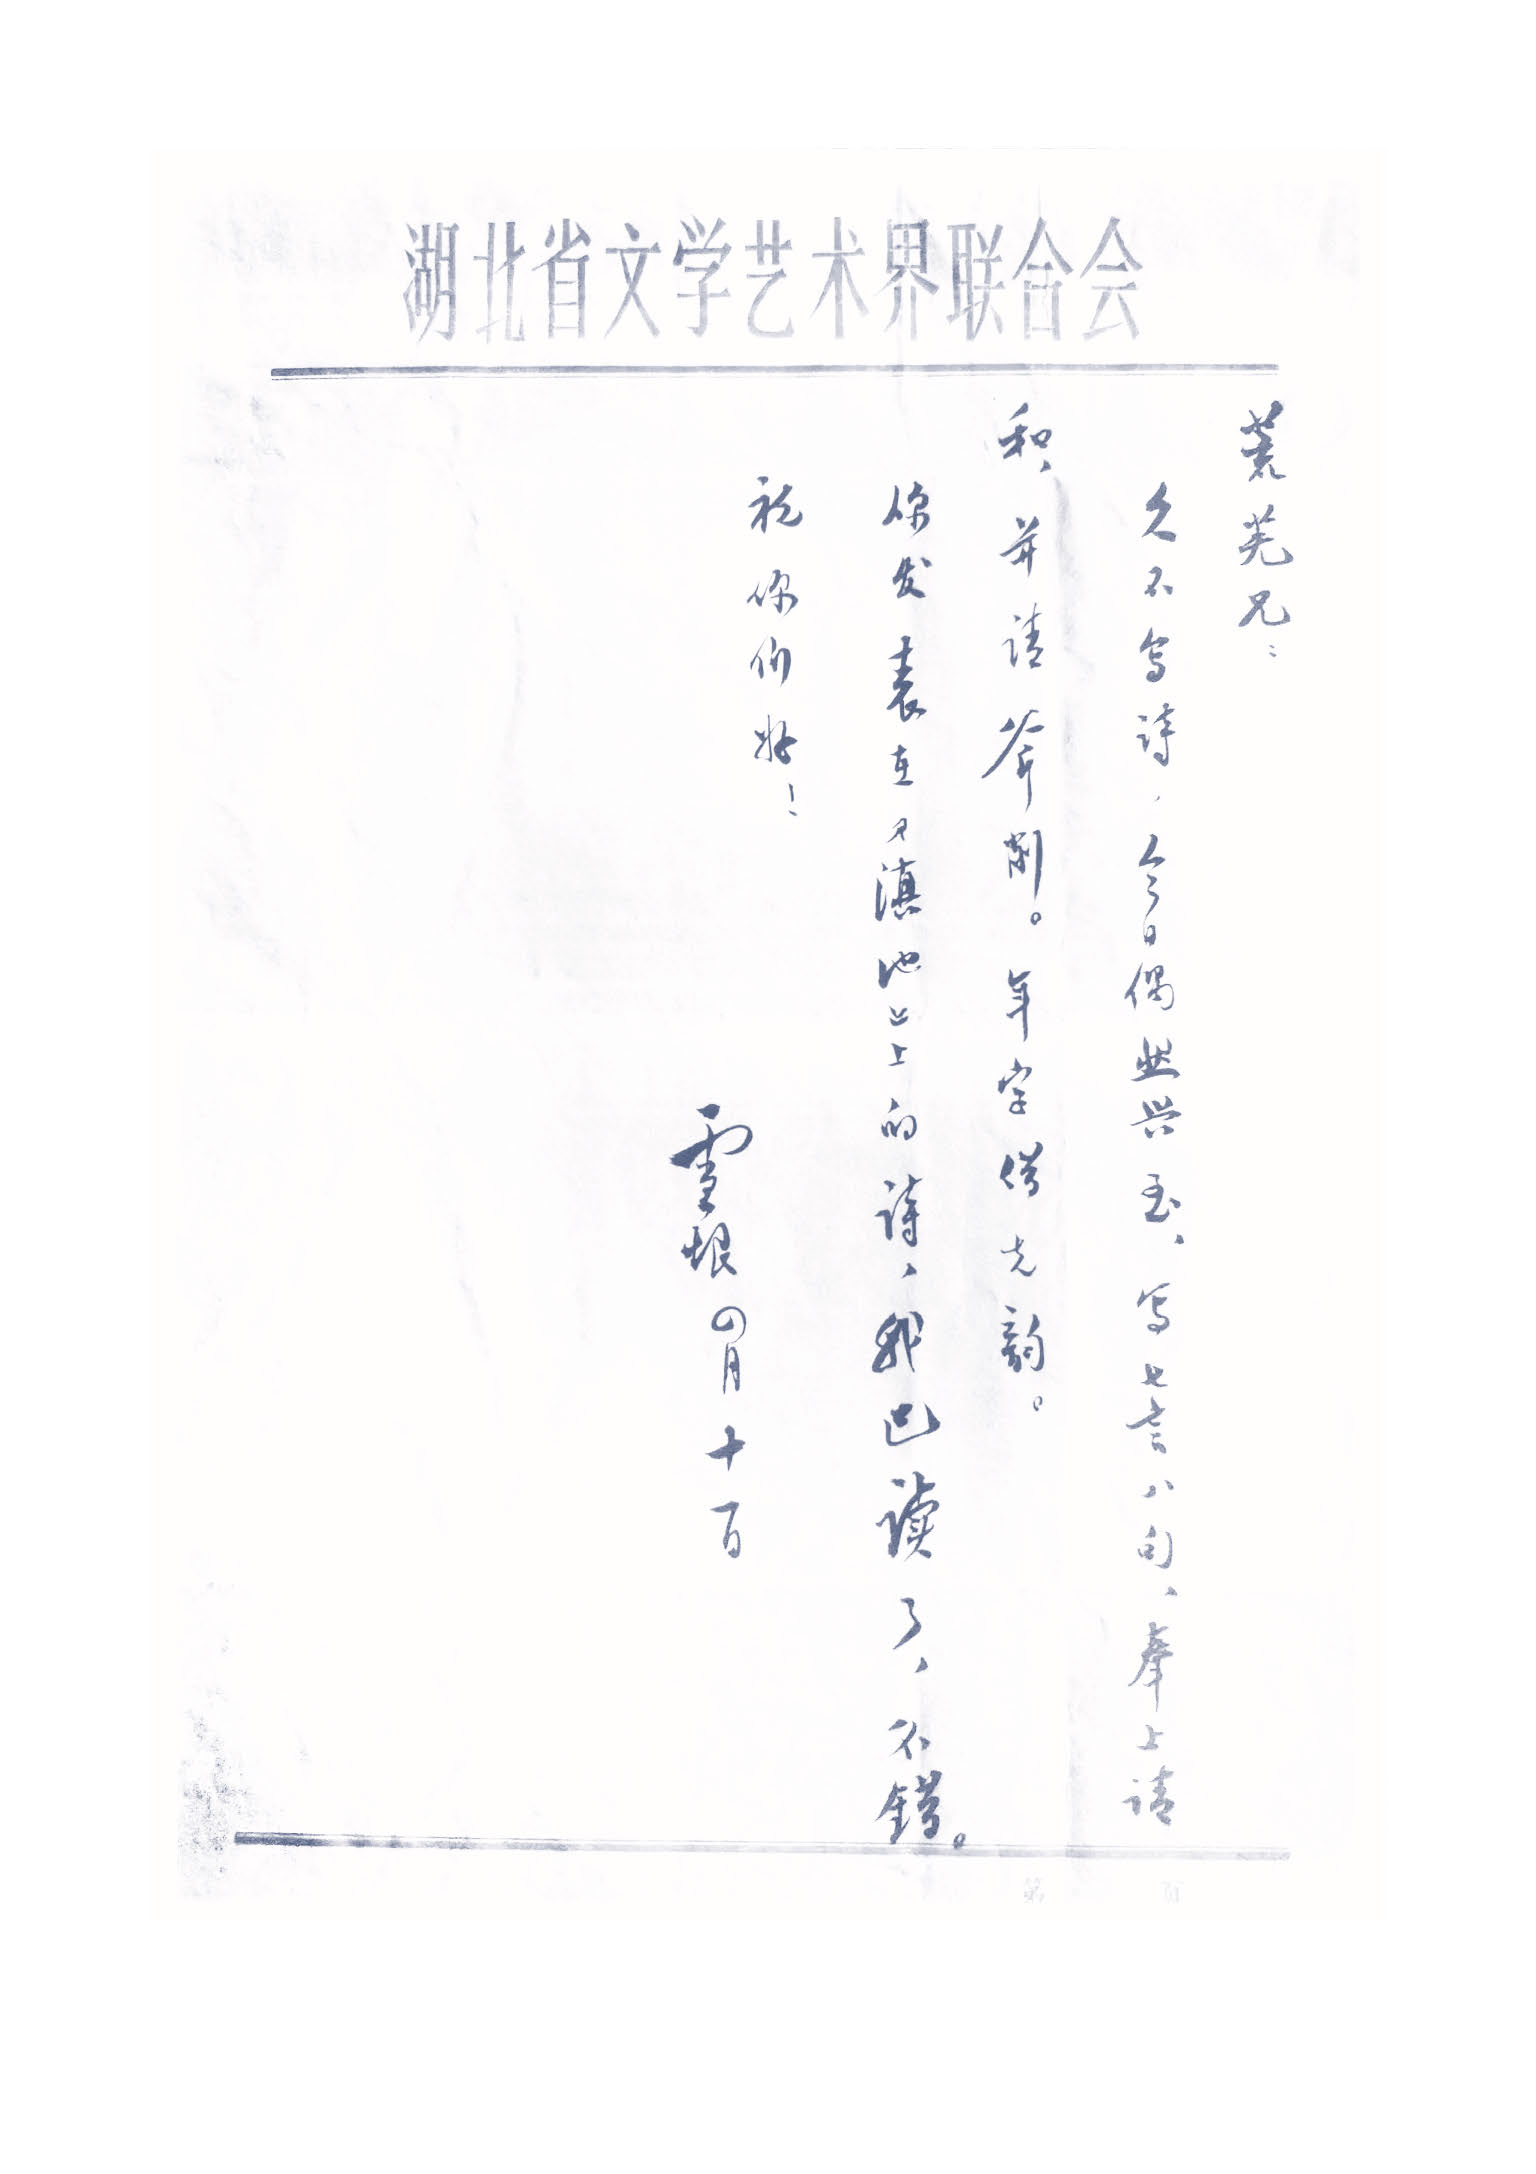 湖北省文学艺术界联合会
荒芜兄：
久不写诗，今日偶然兴至，写七言八句，奉上请
和，并请斧削。年字借先韵。
你发表在《滇池》上的诗，我已读了，不错。
祝你们好！
雪垠 四月十一日
第 页